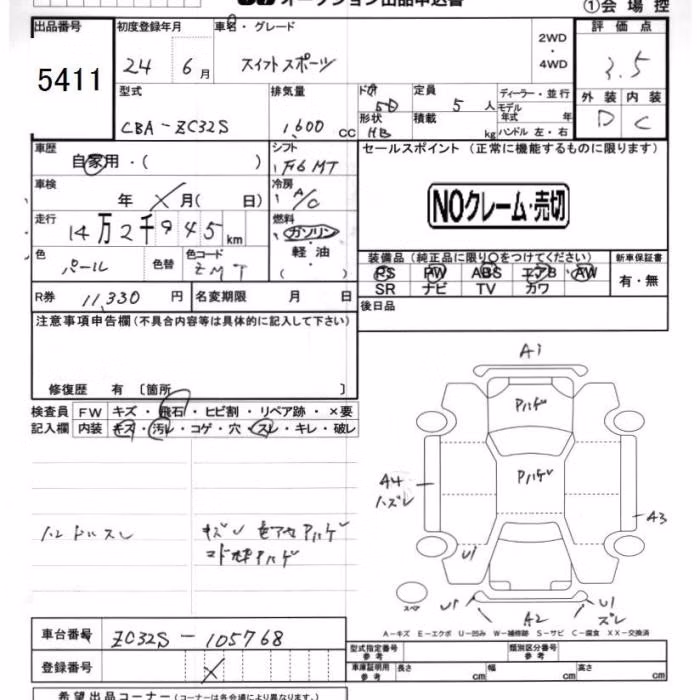 オークション出品申込書
①会場控
出品番号
5411
初度登録年月
24 6月
車名・グレード
スイフトスポーツ
2WD
・
4WD
評価点
3.5
型式
CBA-ZC32S
排気量
1,600 CC
ドア
5D
形状
HB
定員
5 人
積載
kg
ディーラー・並行
モデル
年式 年
ハンドル 左・右
外装 内装
D C
車歴
自家用・( )
シフト
F6 MT
セールスポイント (正常に機能するものに限ります)
NOクレーム・売切
車検
年 月( 日)
冷房
A/C
走行
14万2千945km
燃料
ガソリン
・軽油
・( )
色
パール
色替
色コード
ZMT
装備品 (純正品に限り○をつけてください)
PS PW ABS エアB AW
SR ナビ TV カワ
新車保証書
有・無
R券 11,330 円
名変期限 月 日
後日品
注意事項申告欄 (不具合内容等は具体的に記入して下さい)
修復歴 有 〔箇所 〕
検査員
記入欄
FW キズ・飛石・ヒビ割・リペア跡・×要
内装 キズ・汚レ・コゲ・穴・スレ・キレ・破レ
ハンドルスレ
A1
Pハゲ
Pハゲ
A4
ハズレ
A3
U1
U1
A2
U1
ズレ
スペア
A-キズ E-エクボ U-凹み W-補修跡 S-サビ C-腐食 XX-交換済
車台番号 ZC32S-105768
登録番号
型式指定番号
参考
類別区分番号
参考
車庫証明用
参考
長さ cm 幅 cm 高さ cm
希望出品コーナー (コーナーは各会場により異なります。)